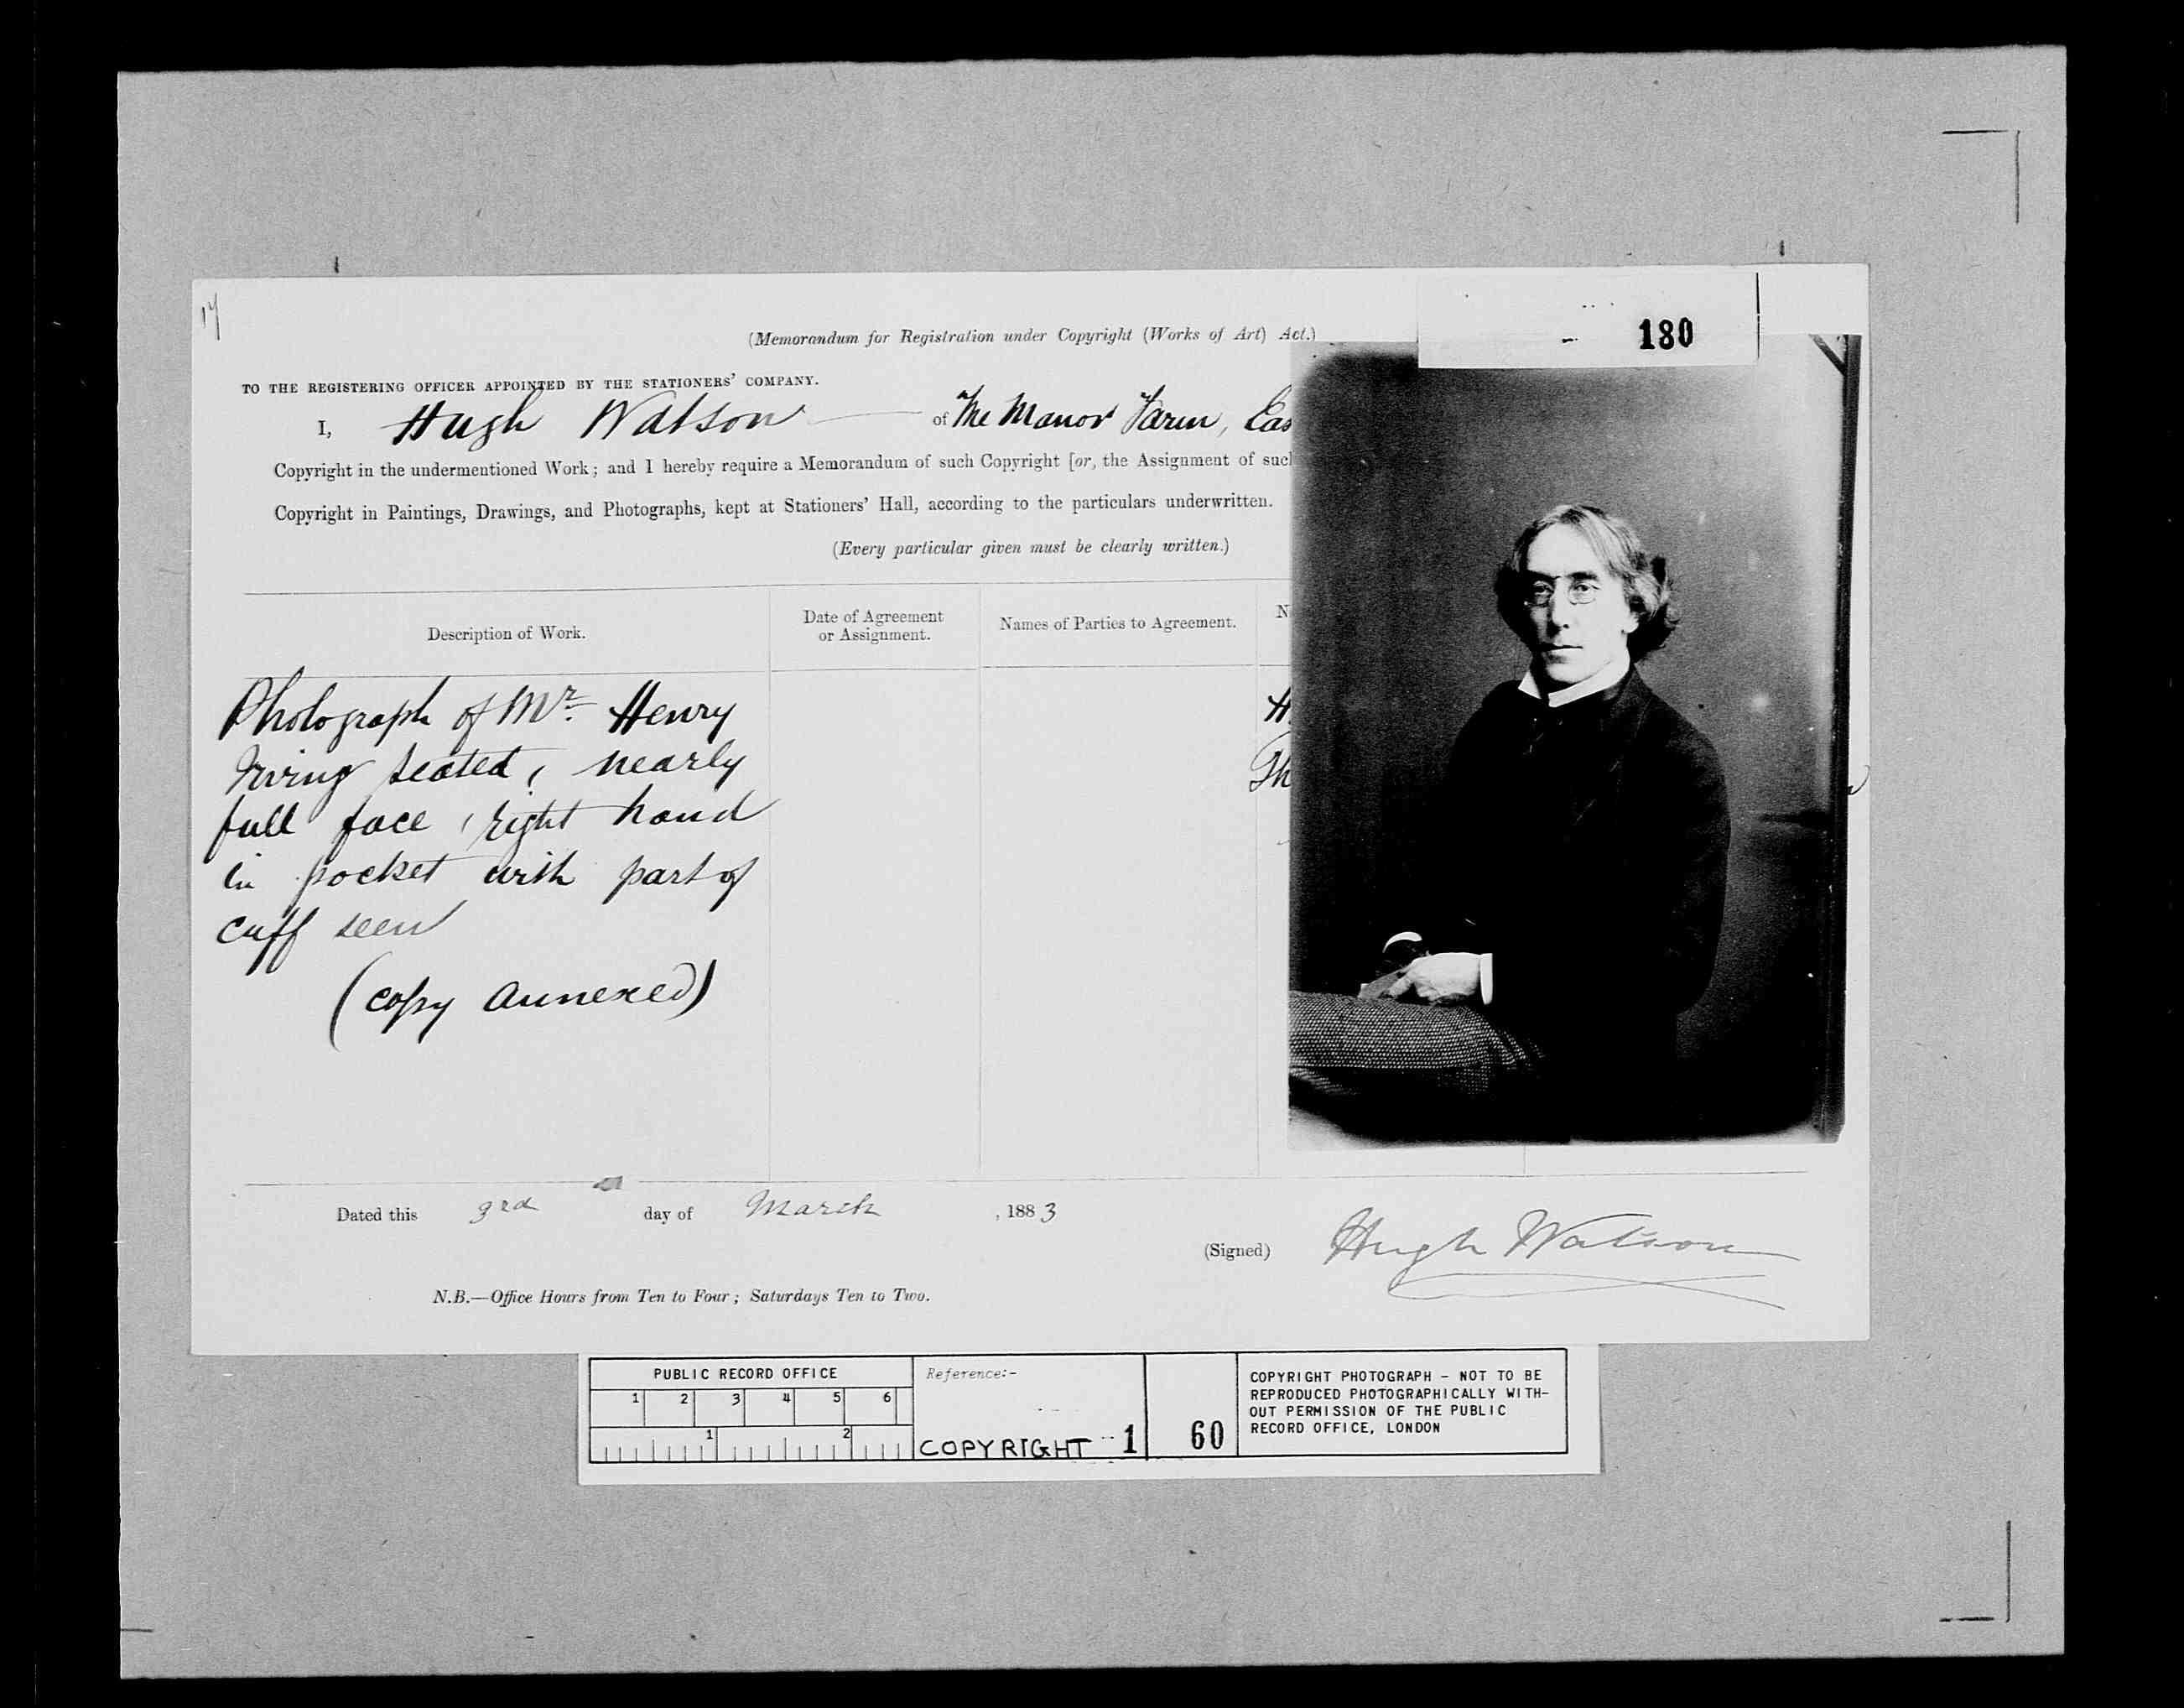 17
180
(Memorandum for Registration under Copyright (Works of Art) Act.)
TO THE REGISTERING OFFICER APPOINTED BY THE STATIONERS' COMPANY.
I, Hugh Watson of The Manor Farm, Eas
Copyright in the undermentioned Work; and I hereby require a Memorandum of such Copyright [or, the Assignment of suc
Copyright in Paintings, Drawings, and Photographs, kept at Stationers' Hall, according to the particulars underwritten.
(Every particular given must be clearly written.)
Description of Work.
Date of Agreement
or Assignment.
Names of Parties to Agreement.
N
Photograph of Mr. Henry
Irving seated, nearly
full face, right hand
in pocket with part of
cuff seen
(copy annexed)
H
Th
Dated this 3rd day of March, 1883
(Signed) Hugh Watson
N.B.—Office Hours from Ten to Four; Saturdays Ten to Two.
PUBLIC RECORD OFFICE
1 2 3 4 5 6
1 2
Reference:-
COPYRIGHT 1 60
COPYRIGHT PHOTOGRAPH - NOT TO BE
REPRODUCED PHOTOGRAPHICALLY WITH-
OUT PERMISSION OF THE PUBLIC
RECORD OFFICE, LONDON